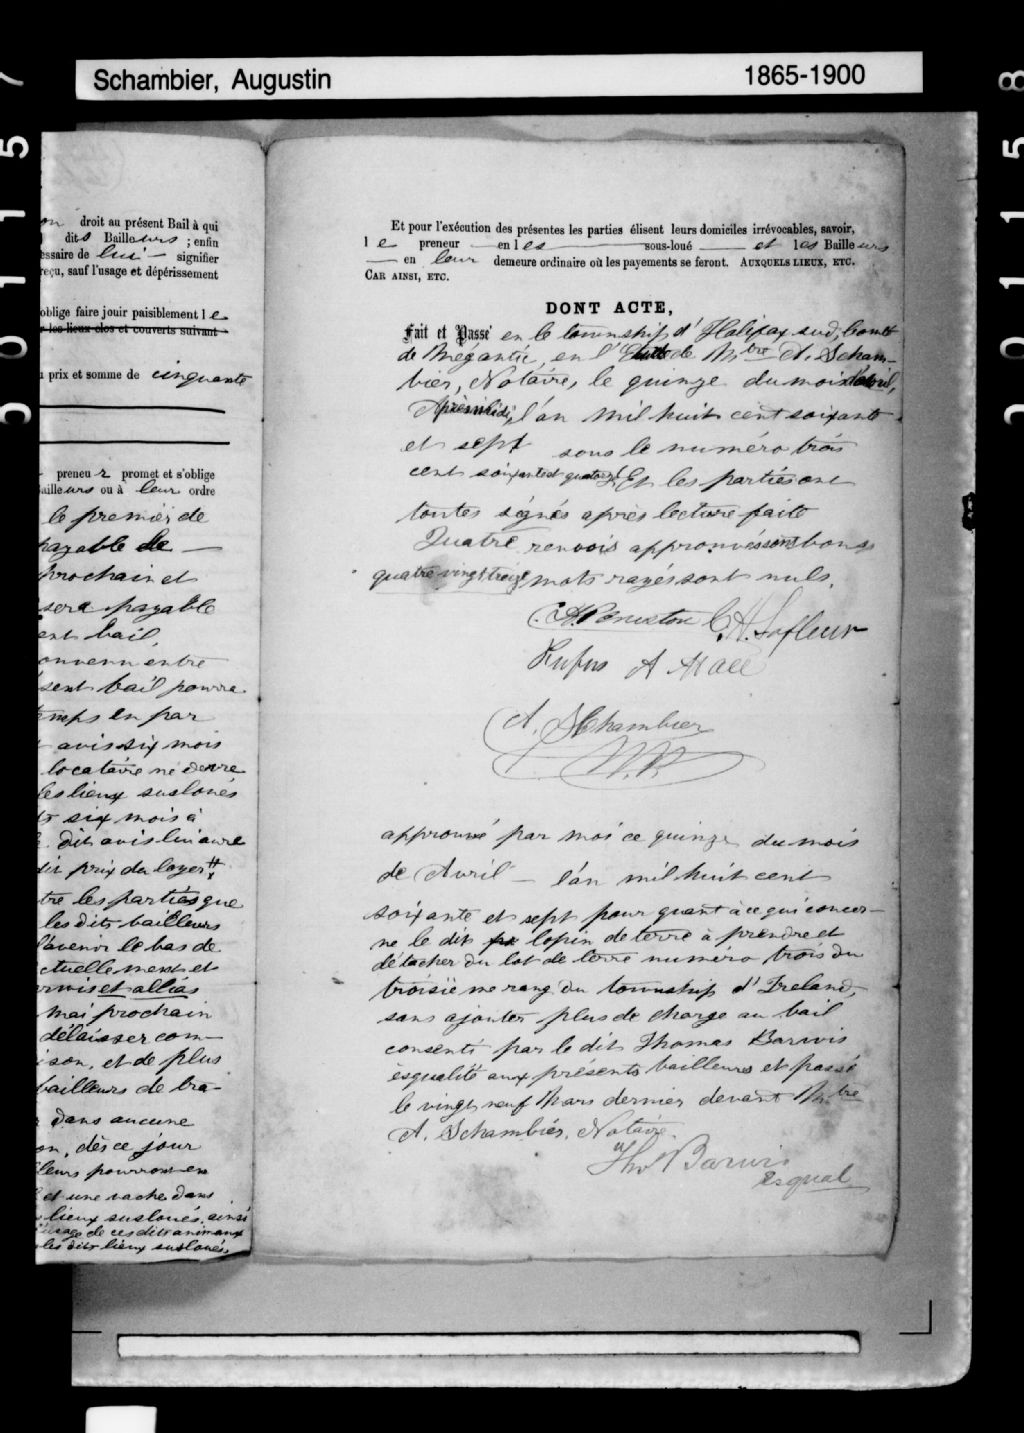 Schambier, Augustin 1865-1900
droit au présent Bail à qui
dits Bailleurs ; enfin
essaire de lui signifier
reçu, sauf l'usage et dépérissement
oblige faire jouir paisiblement le
r les lieux clos et couverts suivant
prix et somme de cinquante
preneur promet et s'oblige
ailleurs ou à leur ordre
le premier de
payable le
prochain et
sera payable
ent bail
onvenu entre
sent bail pourra
temps en par
avis six mois
locataire ne devra
les lieux susloués
six mois à
dit avis lui aura
dit prix du loyer
tre les parties que
les dits bailleurs
l'avenir le bas de
ctuellement et
et allias
mai prochain
délaisser com-
ison, et de plus
bailleurs de tra-
dans aucune
on, dès ce jour
leurs pourront en
et une vache dans
lieux susloués, ainsi
usage de ces dits animaux
les dits lieux susloués.
Et pour l'exécution des présentes les parties élisent leurs domiciles irrévocables, savoir,
le preneur en les sous-loué et les Bailleurs
en leur demeure ordinaire où les payements se feront. AUXQUELS LIEUX, ETC.
CAR AINSI, ETC.
DONT ACTE,
Fait et Passé en le township d'Halifax sud, Comté
de Mégantic, en l'Etude de Mtre A. Scham-
bier, Notaire, le quinze du mois d'avril,
Après midi, l'an mil huit cent soixante
et sept sous le numéro trois
cent soixante et quatorze Et les parties ont
toutes signés après lecture faite
Quatre renvois approuvés sont bons
quatre vingt treize mots rayés sont nuls.
C. A. Lafleur
Rufus A
A. Schambier
N.P.
approuvé par moi ce quinze du mois
de Avril l'an mil huit cent
soixante et sept pour quant à ce qui concer-
ne le dit lopin de terre à prendre et
détacher du lot de terre numéro trois du
troisième rang du township d'Ireland,
sans ajouter plus de charge au bail
consenti par le dit Thomas Barwis
èsqualité aux présents bailleurs et passé
le vingt neuf Mars dernier devant Mtre
A. Schambier, Notaire.
Tho Barwis
esqual